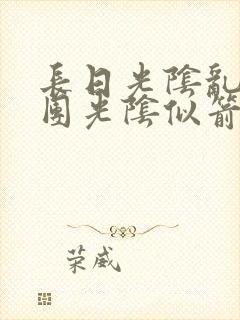 長日光陰亂
團光陰似箭
荣威